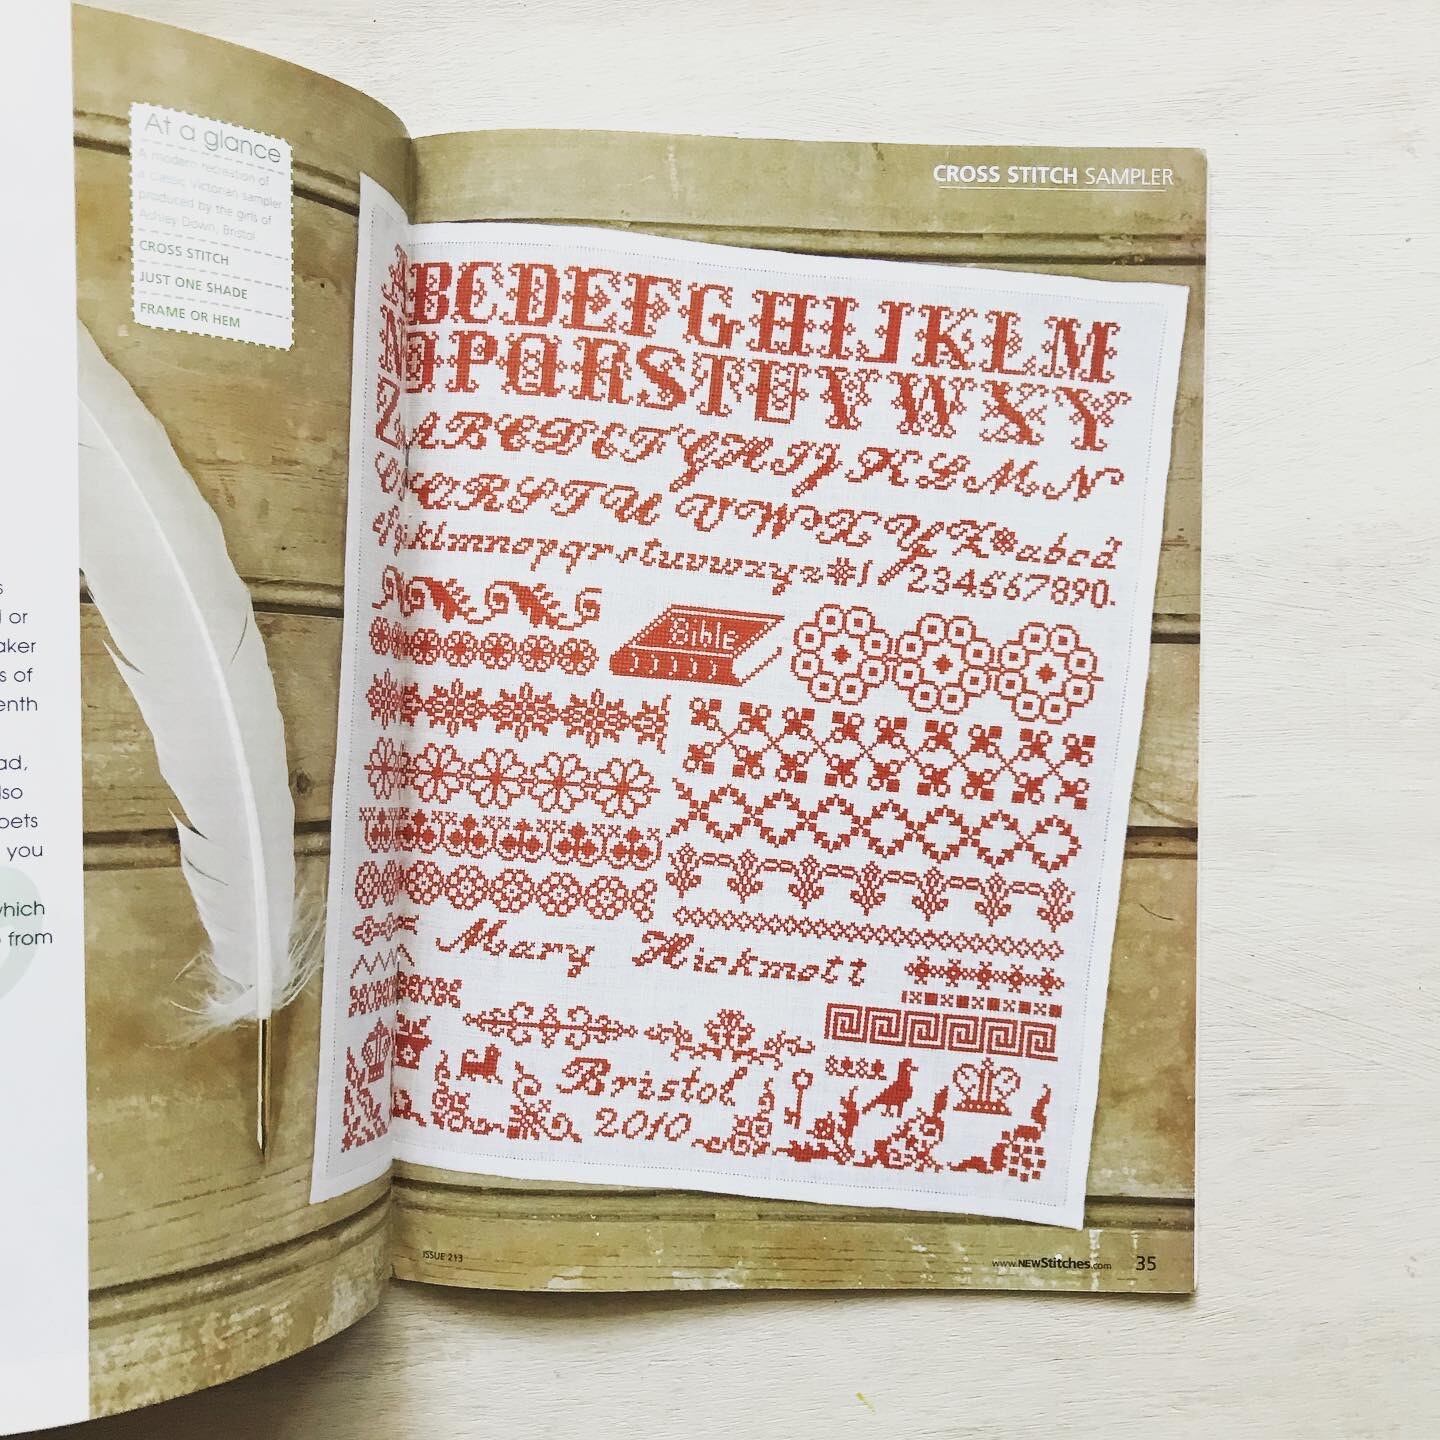 At a glance
A modern recreation of
a classic Victorian sampler
produced by the girls of
Ashley Down, Bristol
CROSS STITCH
JUST ONE SHADE
FRAME OR HEM
s
or
aker
s of
enth
ad,
lso
pets
you
which
from
CROSS STITCH SAMPLER
ABCDEFGHIJKLM
NOPQRSTUVWXY
Z ABCDEFGHIJKLMN
OPQRSTUVWXYZ abcd
jklmnopqrstuvwxyz 1234567890.
Bible
Mary Hickmott
Bristol
2010
ISSUE 213
www.NEWStitches.com 35